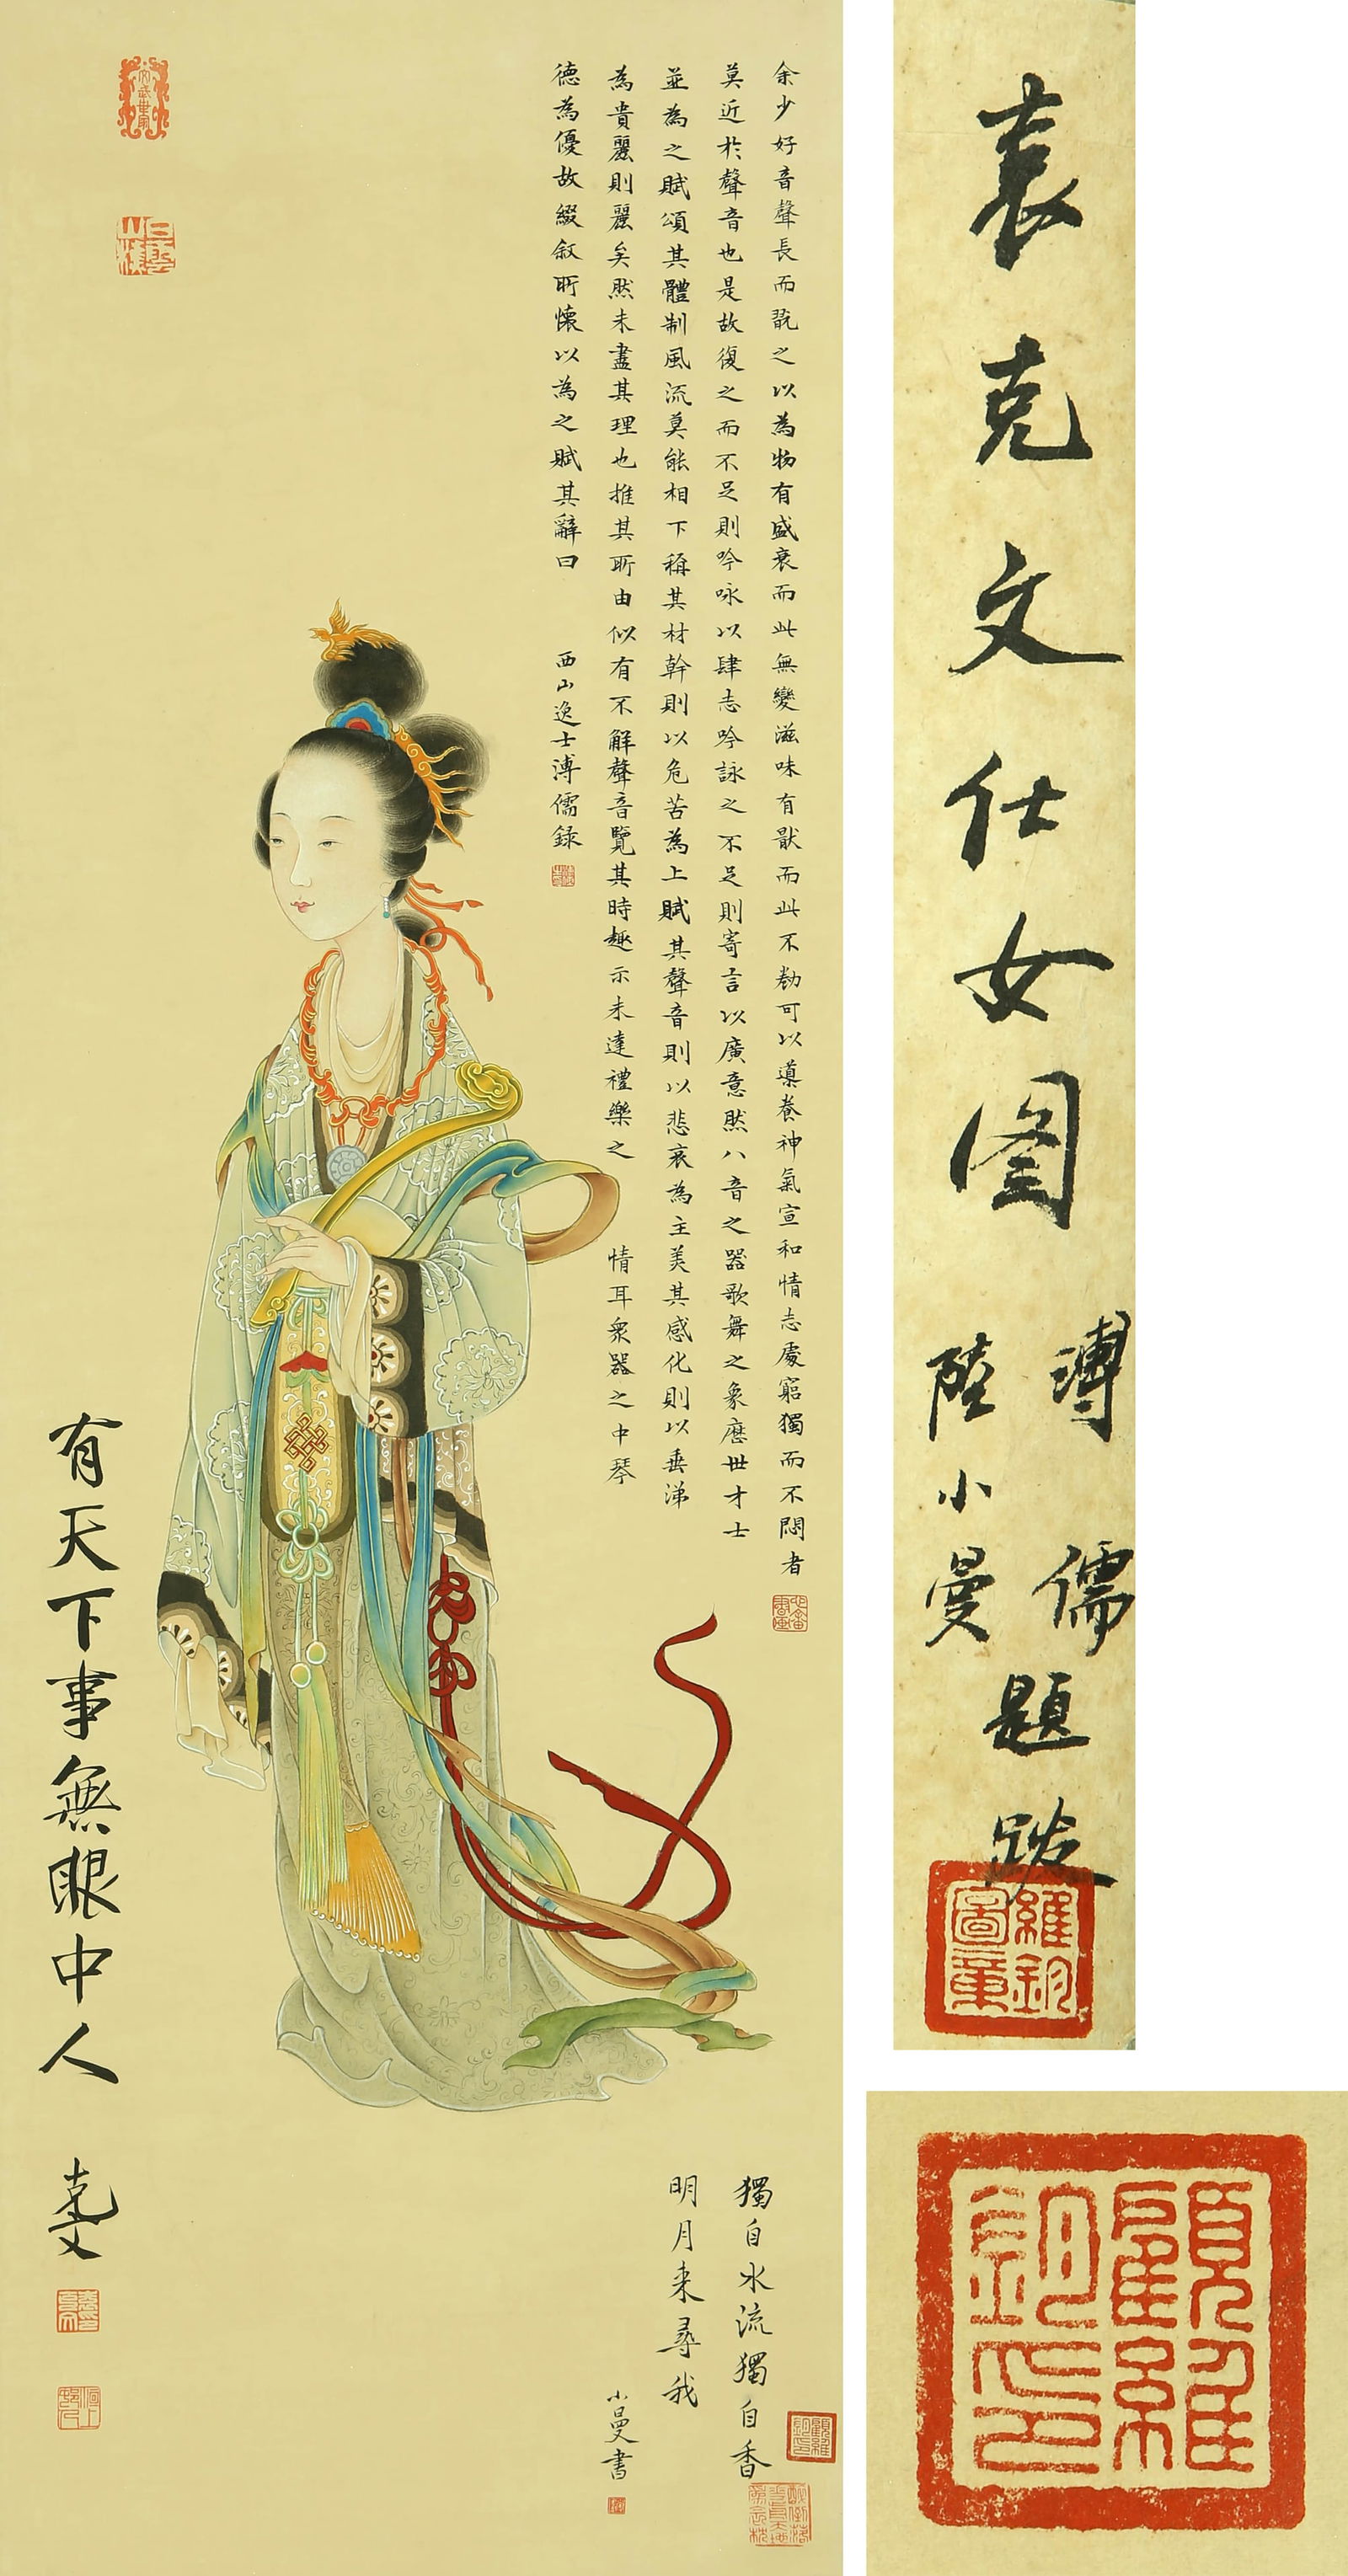 余少好音聲長而翫之以為物有盛衰而此無變滋味有猒而此不勌可以導養神氣宣和情志處窮獨而不悶者
莫近於聲音也是故復之而不足則吟咏以肆志吟詠之不足則寄言以廣意然八音之器歌舞之象歷世才士
並為之賦頌其體制風流莫能相下稱其材幹則以危苦為上賦其聲音則以悲哀為主美其感化則以垂涕
為貴麗則麗矣然未盡其理也推其所由似有不解聲音覽其時趣示未達禮樂之情耳衆器之中琴
德為優故綴叙所懷以為之賦其辭曰
西山逸士溥儒録
有天下事無眼中人
克文
獨自水流獨自香
明月来尋我
小曼書
袁克文仕女图
溥儒
陸小曼
題跋
維鈞
圖章
顧維
鈞印